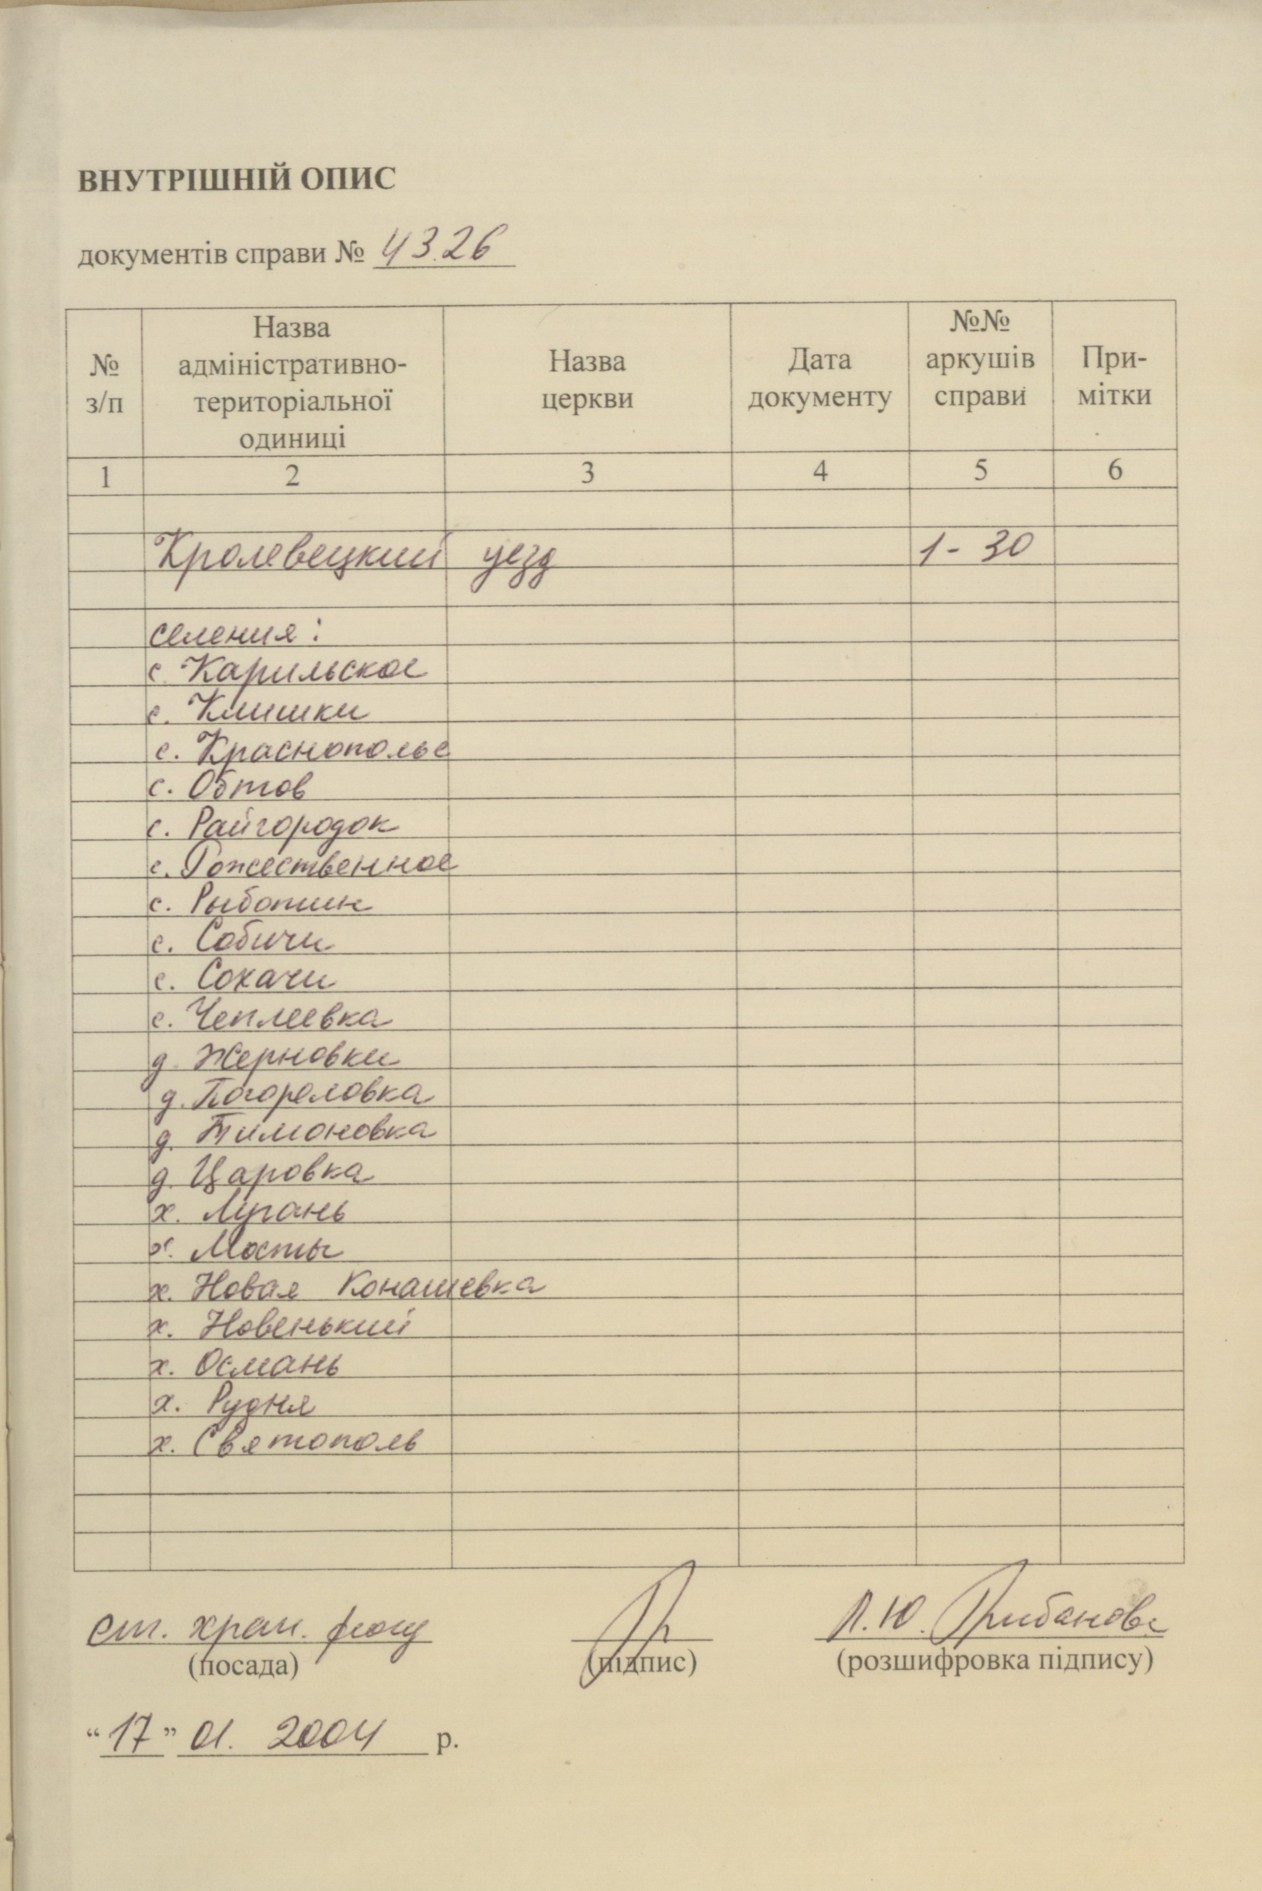 ВНУТРІШНІЙ ОПИС
документів справи № 4326
№ з/п
Назва адміністративно-територіальної одиниці
Назва церкви
Дата документу
№№ аркушів справи
При-мітки
1 2 3 4 5 6
Кролевецкий уезд 1-30
селения:
с. Карильское
с. Клишки
с. Краснополье
с. Обтов
с. Райгородок
с. Рожественное
с. Рыботин
с. Собичи
с. Сохачи
с. Чеплеевка
д. Жерновки
д. Погореловка
д. Тимоновка
д. Царовка
х. Лугань
х. Мосты
х. Новая Конашевка
х. Новенький
х. Османь
х. Рудня
х. Святополь
ст. хран. фонд
(посада) (підпис) (розшифровка підпису)
“17” 01. 2004 р.